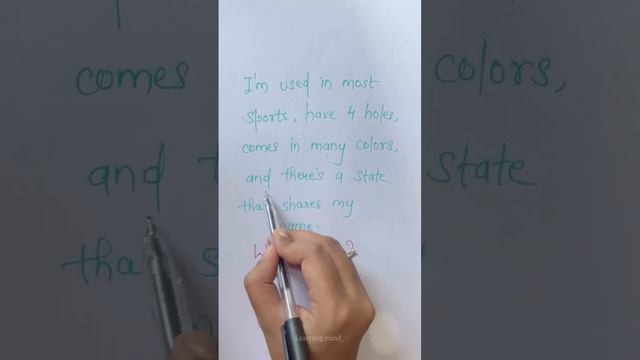 I'm used in most
sports, have 4 holes,
comes in many colors,
and there's a state
that shares my
name.
Learning.mind_